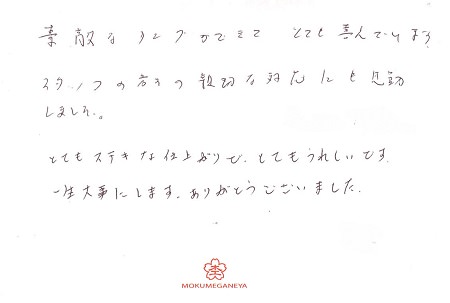 素敵なリングができて とても喜んでいます
スタッフの方々の親切な対応にも感動
しました。
とてもステキな仕上がりで、とてもうれしいです。
一生大事にします。ありがとうございました。
MOKUMEGANEYA